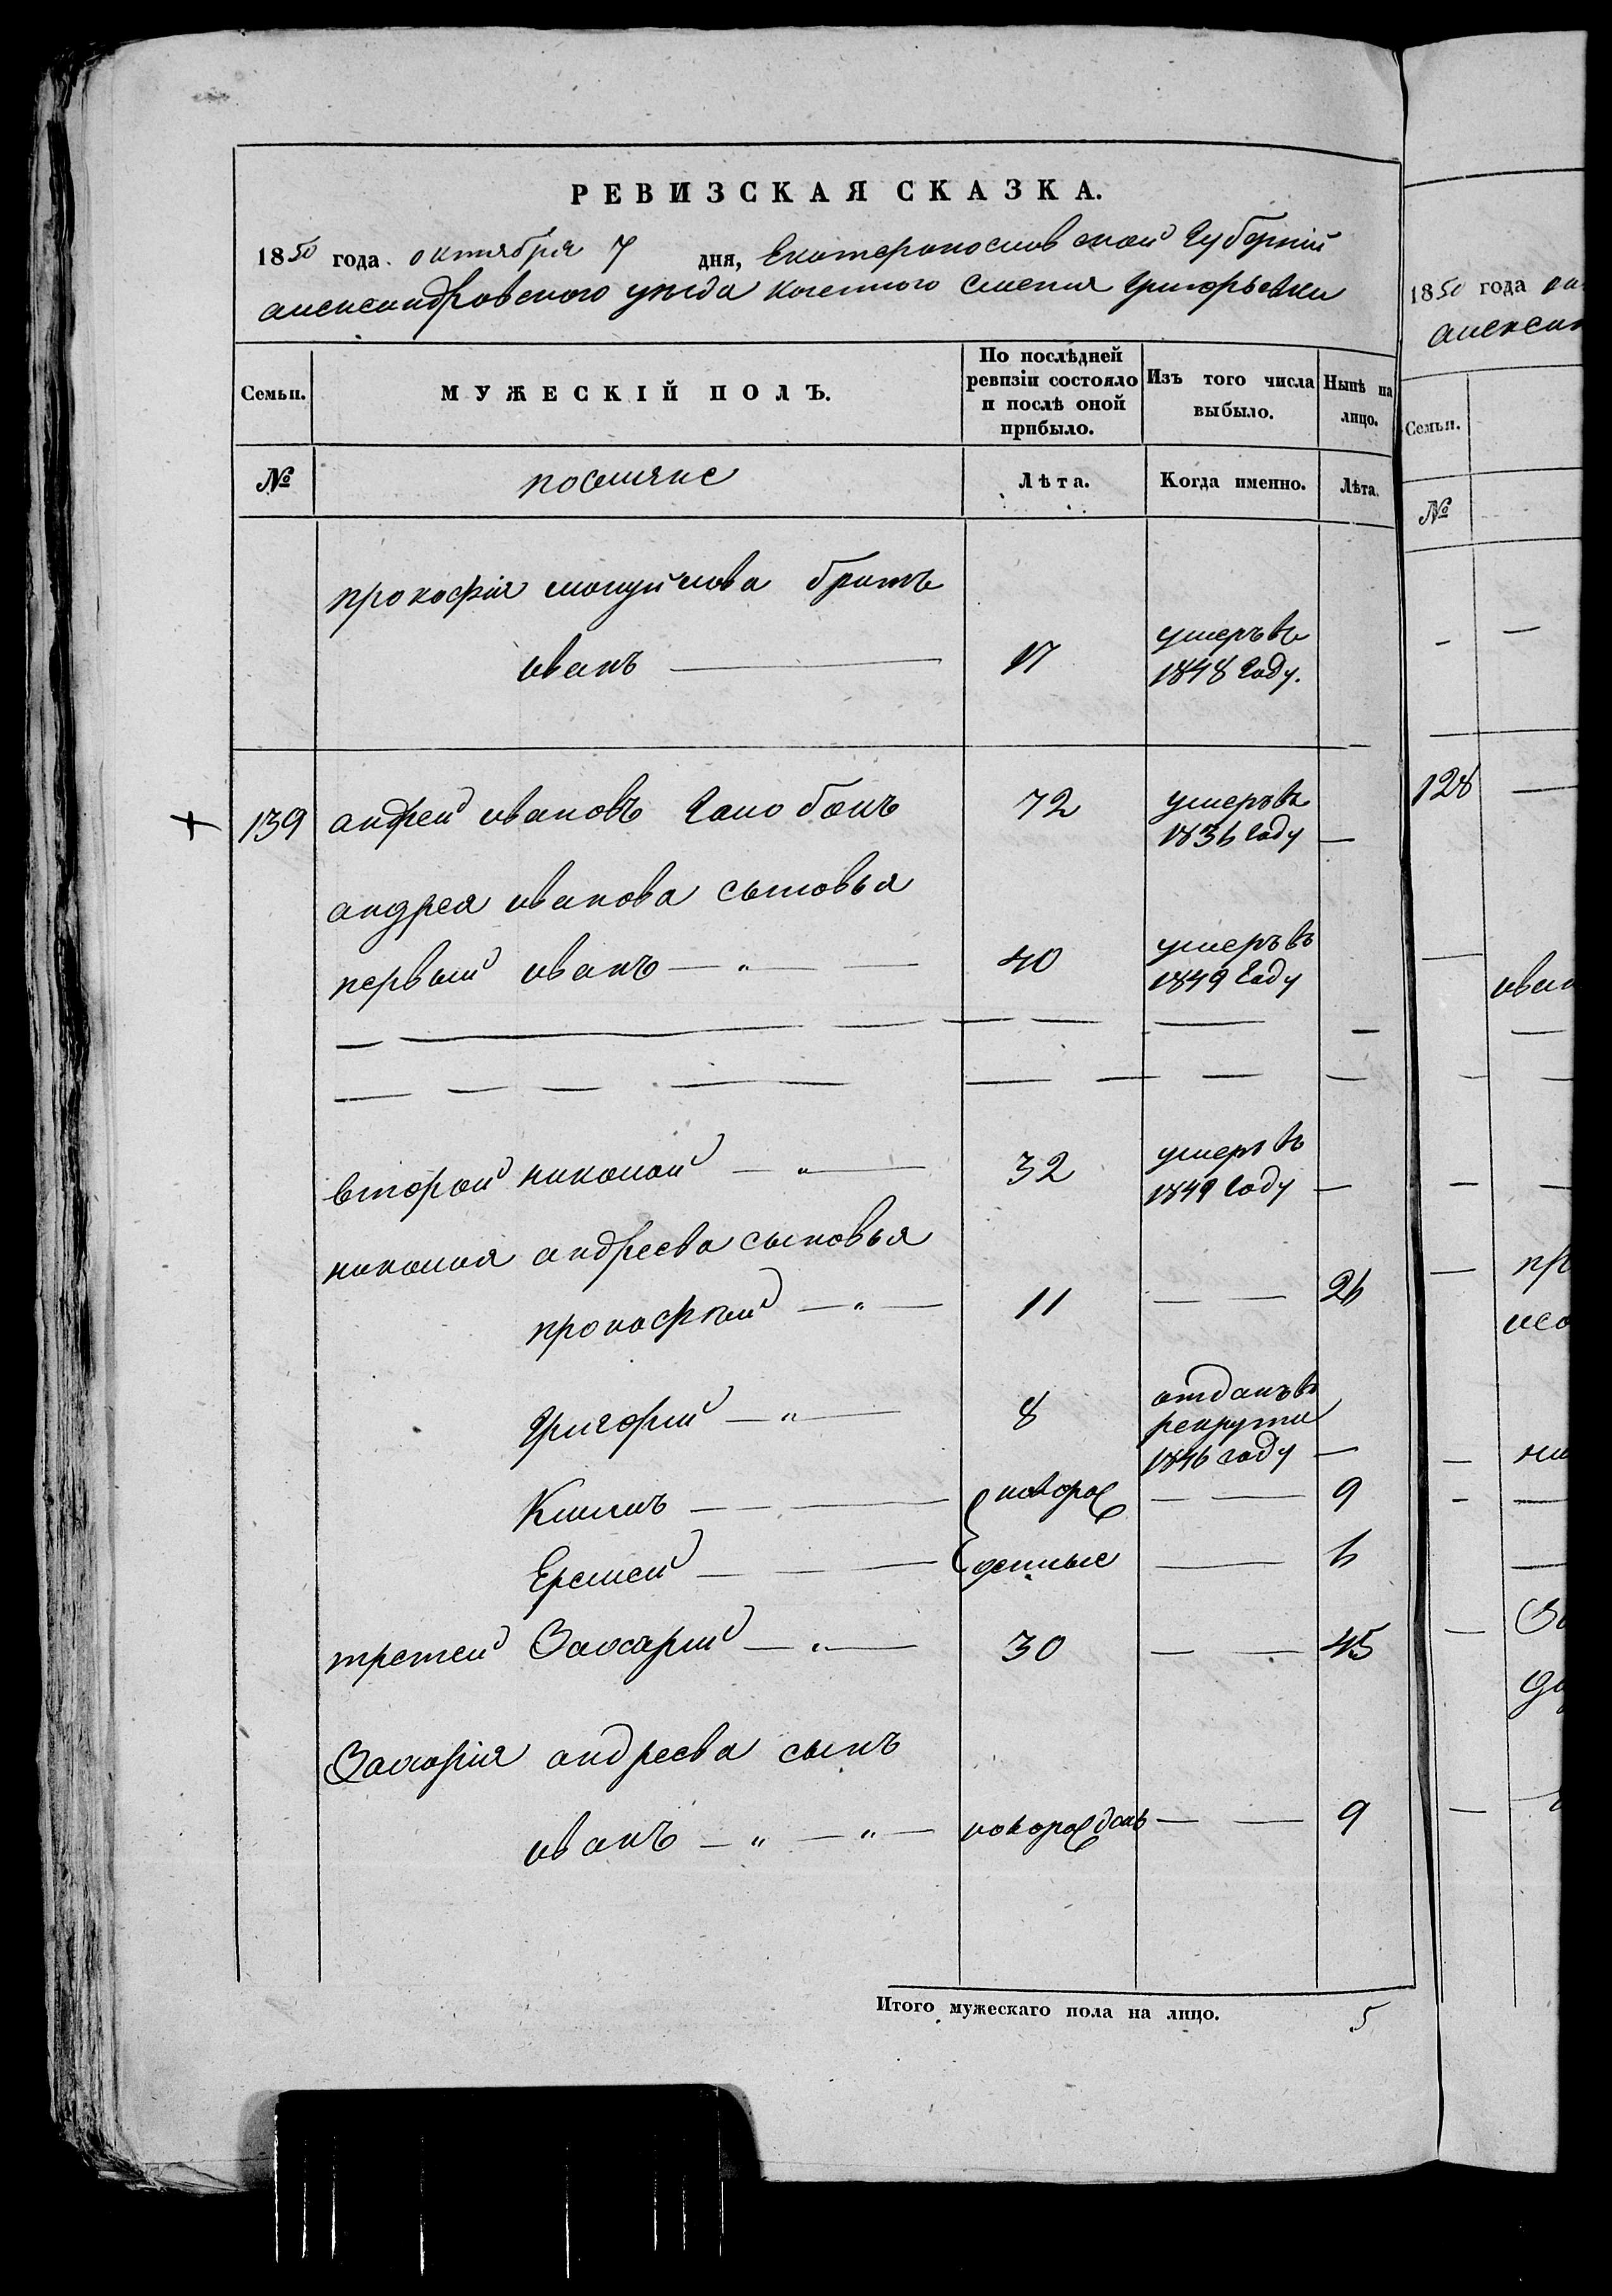 РЕВИЗСКАЯ СКАЗКА.
1850 года октября 7 дня, Екатеринославской Губернии
александровского уезда казенного Селения Григорьевки
Семьи.
МУЖЕСКІЙ ПОЛЪ.
По послѣдней ревизіи состояло и послѣ оной прибыло.
Изъ того числа выбыло.
Нынѣ на лицо.
№
поселяне
Лѣта.
Когда именно.
Лѣта.
прокофія мануйлова братъ
иванъ 17 умеръ въ 1848 году.
139 андрей ивановъ 72 умеръ въ 1836 году
андрея иванова сыновья
первый иванъ 40 умеръ въ 1849 году
второй николай 32 умеръ въ 1849 году
николая андреева сыновья
прокофѣй 11 26
Григорий 8 отданъ в рекруты 1846 году
Климъ новорож 9
Еремей денные 6
третей Захарий 30 45
Захария андреева сынъ
иванъ новорожденъ 9
Итого мужескаго пола на лицо. 5
1850 года
Семьи.
№
128